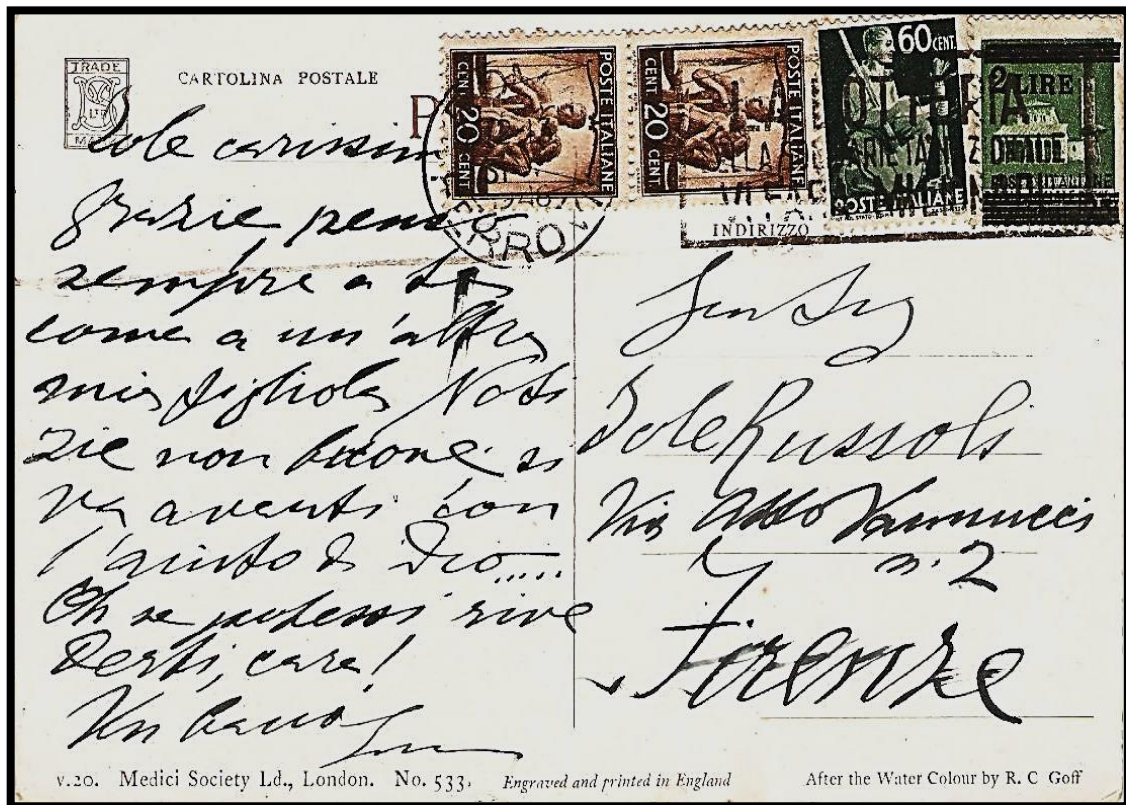 TRADE
LTD
CARTOLINA POSTALE
POSTE ITALIANE
CENT 20
POSTE ITALIANE
CENT 20
60 CENT.
POSTE ITALIANE
2 LIRE
INDIRIZZO
Iole carissima
grazie penso
sempre a te
come a un'altra
mia figliola Noti
zie non buone si
va avanti con
l'aiuto di Dio.....
Oh se potessi rive
derti, cara!
Un bacio
Iole Russoli
Via Atto Vannucci
n. 2
Firenze
v.20. Medici Society Ld., London. No. 533. Engraved and printed in England After the Water Colour by R. C Goff